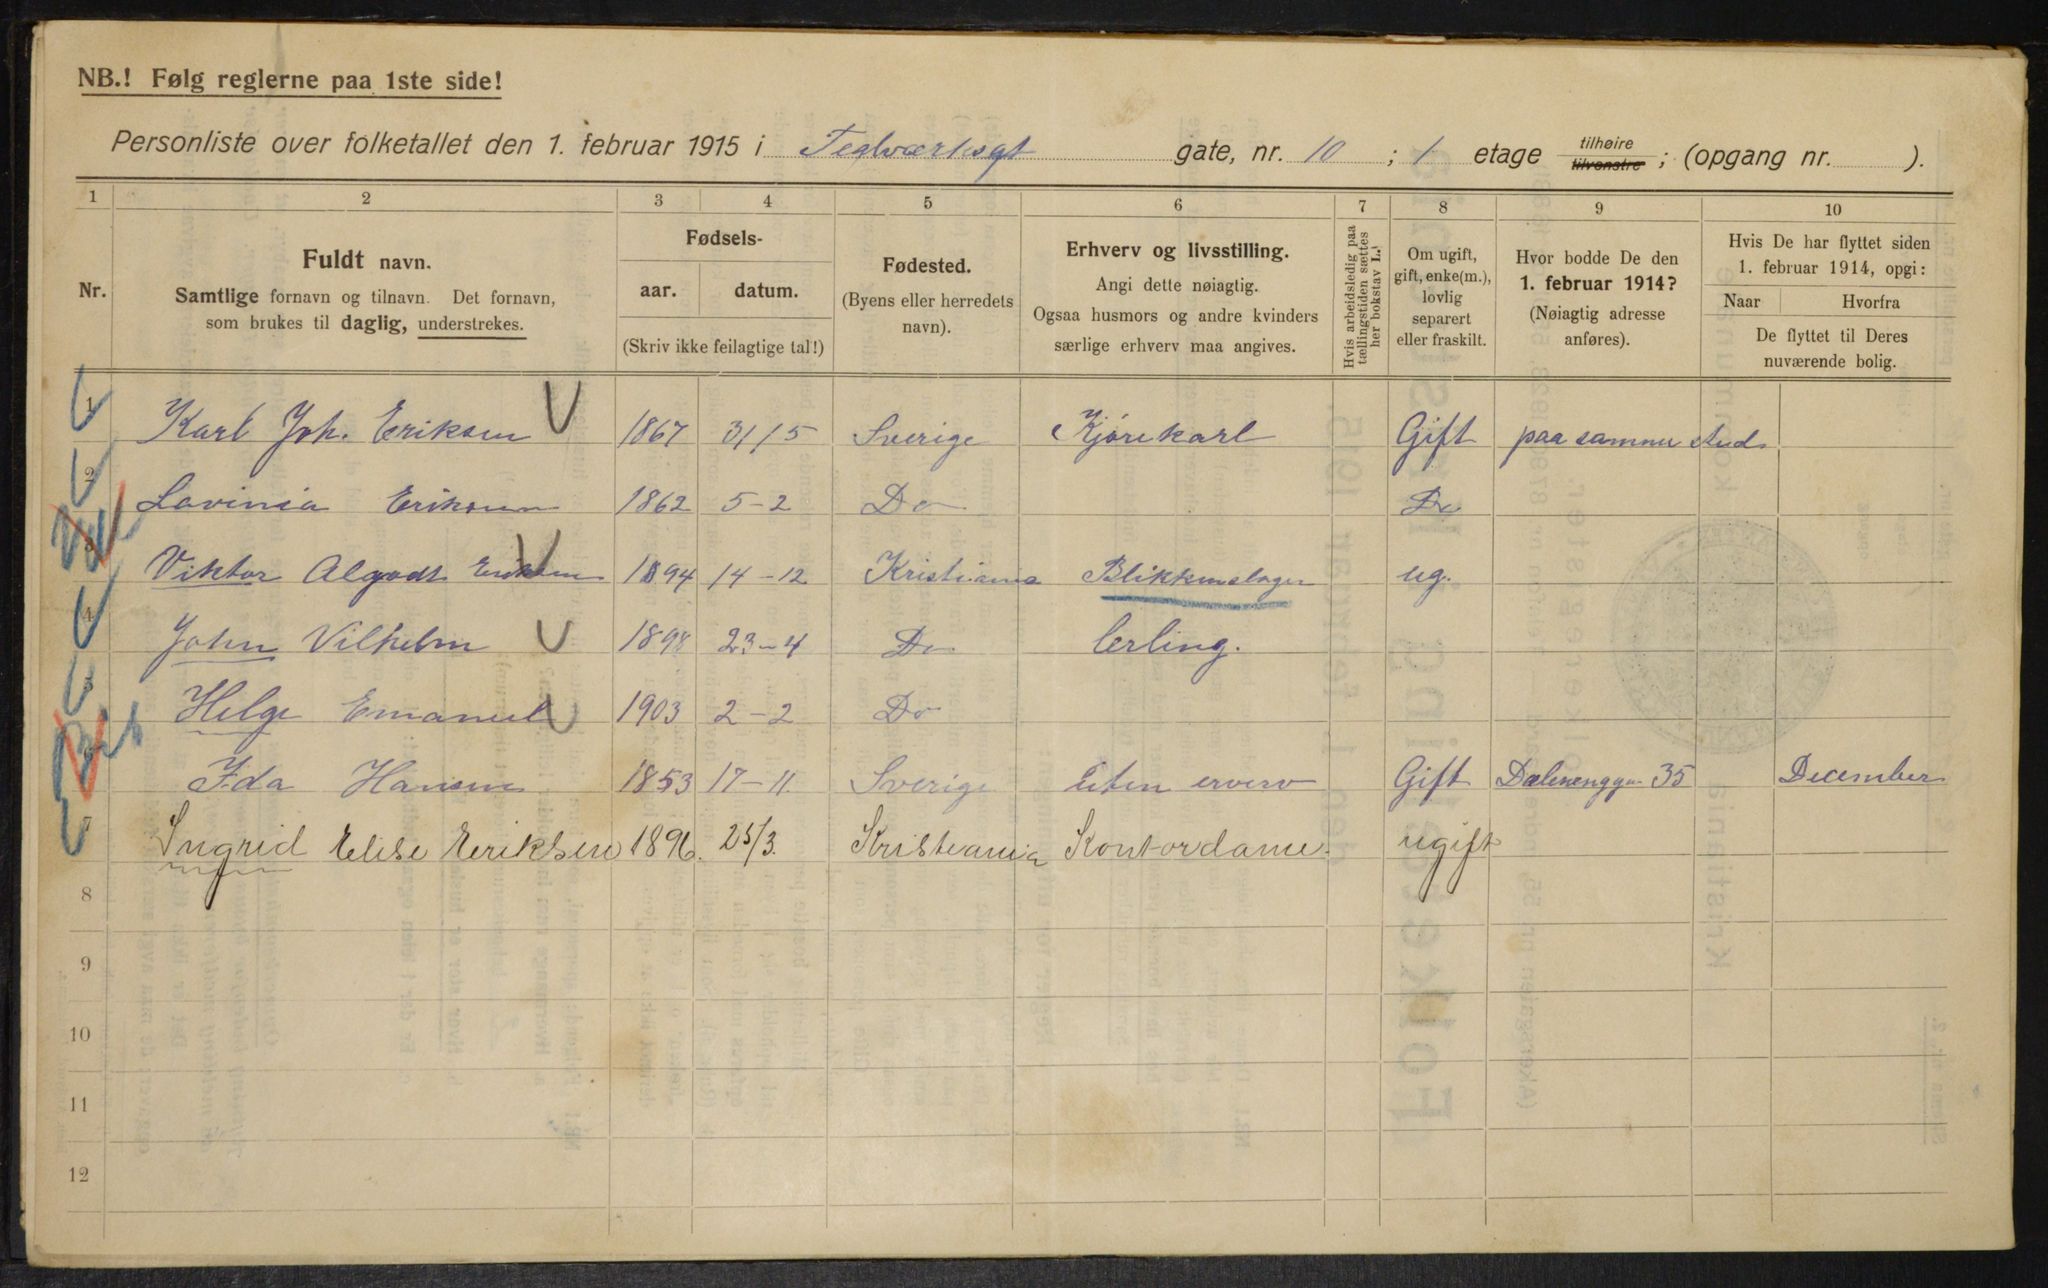 NB.! Følg reglerne paa 1ste side!
Personliste over folketallet den 1. februar 1915 i Teglværksgt gate, nr. 10 ; 1 etage tilhøire tilvenstre ; (opgang nr. ).
1 2 3 4 5 6 7 8 9 10
Nr.
Fuldt navn.
Samtlige fornavn og tilnavn. Det fornavn,
som brukes til daglig, understrekes.
Fødsels-
aar. datum.
(Skriv ikke feilagtige tal!)
Fødested.
(Byens eller herredets
navn).
Erhverv og livsstilling.
Angi dette nøiagtig.
Ogsaa husmors og andre kvinders
særlige erhverv maa angives.
Hvis arbeidsledig paa
tællingstiden sættes
her bokstav L.
Om ugift,
gift, enke(m.),
lovlig
separert
eller fraskilt.
Hvor bodde De den
1. februar 1914?
(Nøiagtig adresse
anføres).
Hvis De har flyttet siden
1. februar 1914, opgi:
Naar Hvorfra
De flyttet til Deres
nuværende bolig.
1 Karl Joh. Eriksen 1867 31/5 Sverige Kjørekarl Gift paa samme sted
2 Lovinia Eriksen 1862 5-2 Do Do
3 Viktor Algodt Eriksen 1894 14-12 Kristiania Blikkenslager ug.
4 John Vilhelm 1898 23-4 Do Erling.
5 Helge Emanuel 1903 2-2 Do
6 Ida Hansen 1853 17-11. Sverige Uten erverv Gift Dælenenggn 35 December
7 Ingrid Elise Eriksen 1896. 25/3. Kristiania Kontordame. ugift
8
9
10
11
12